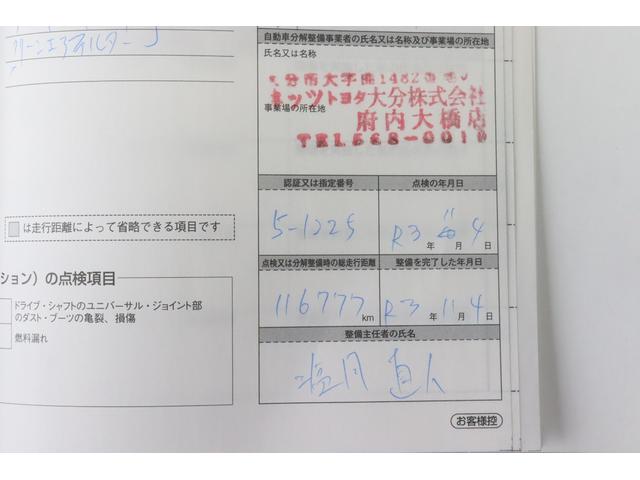 クリーンエアフィルター
自動車分解整備事業者の氏名又は名称及び事業場の所在地
氏名又は名称
大分市大字曲1482番
ネッツトヨタ大分株式会社
事業場の所在地
府内大橋店
TEL568-001
認証又は指定番号
点検の年月日
5-1225
R3年 11月 4日
は走行距離によって省略できる項目です
点検又は分解整備時の総走行距離
整備を完了した年月日
116777km
R3年 11月 4日
ション）の点検項目
ドライブ・シャフトのユニバーサル・ジョイント部
のダスト・ブーツの亀裂、損傷
燃料漏れ
整備主任者の氏名
塩月 直人
お客様控